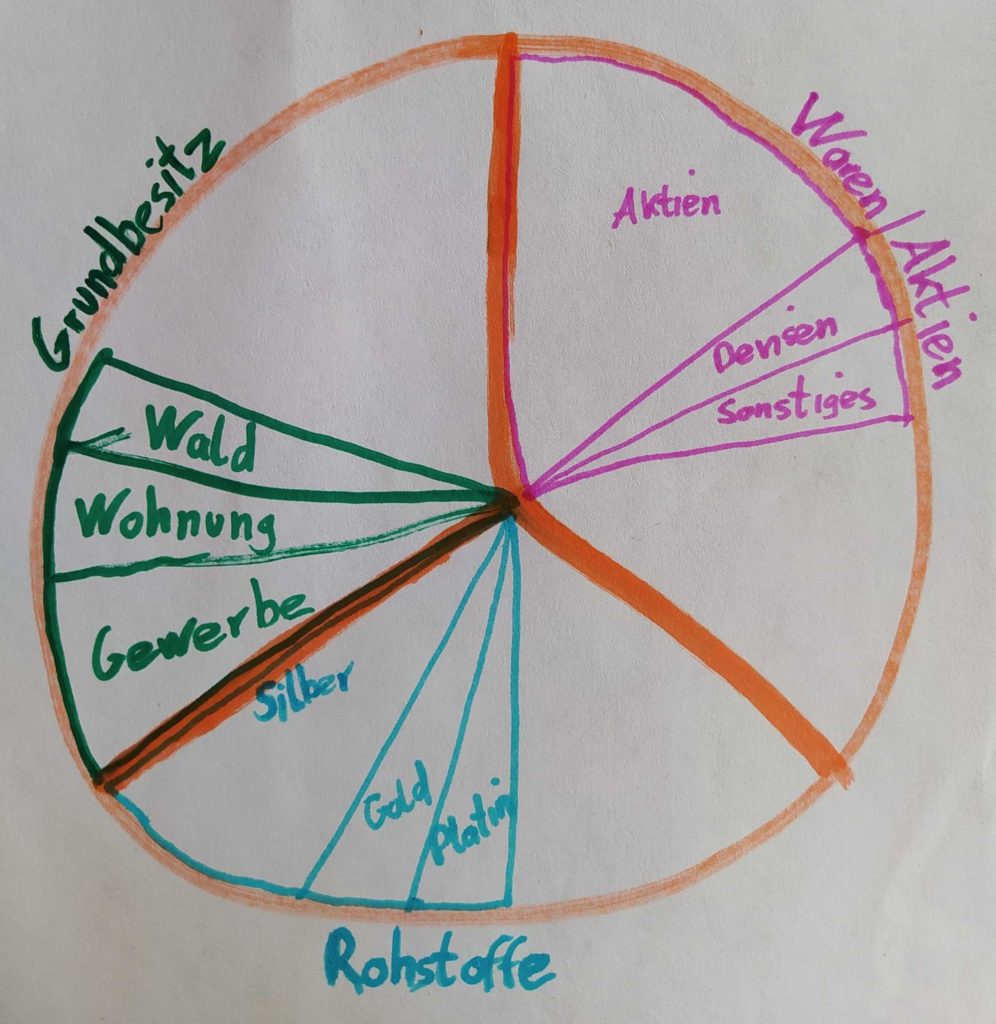 Grundbesitz
Waren/Aktien
Aktien
Devisen
Sonstiges
Wald
Wohnung
Gewerbe
Silber
Gold
Platin
Rohstoffe